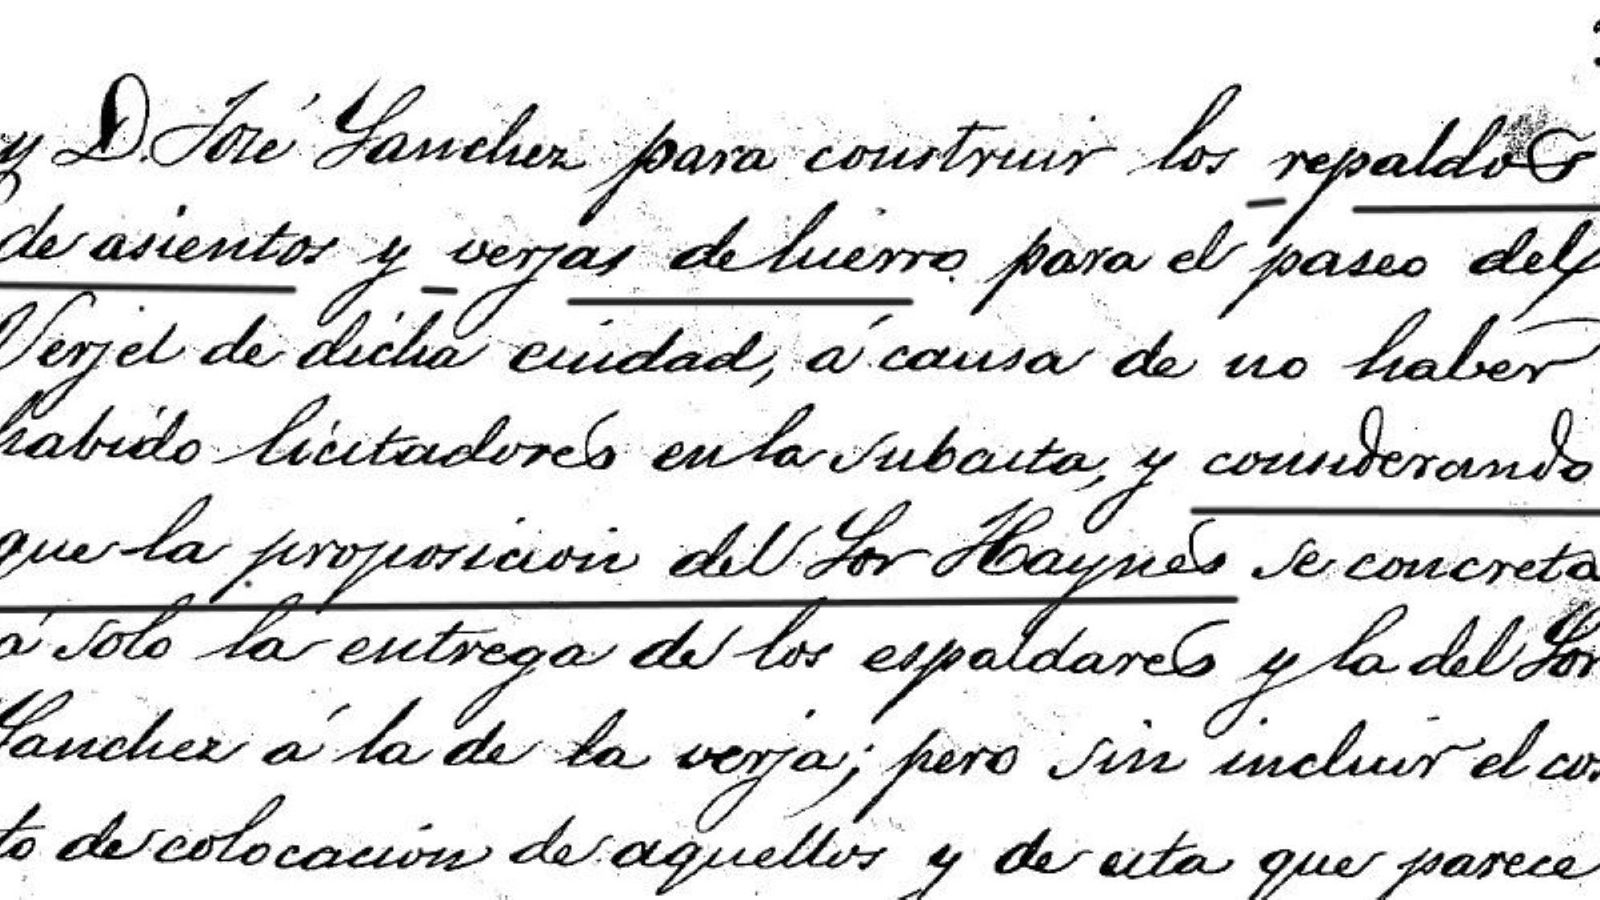 y D. José Sanchez para construir los repaldos
de asientos y verjas de hierro para el paseo del
Verjel de dicha ciudad, á causa de no haber
habido licitadores en la subasta, y considerando
que la proposicion del Sor Haynes se concreta
á solo la entrega de los espaldares y la del Sor
Sanchez á la de la verja; pero sin incluir el cos
to de colocacion de aquellos y de esta que parece